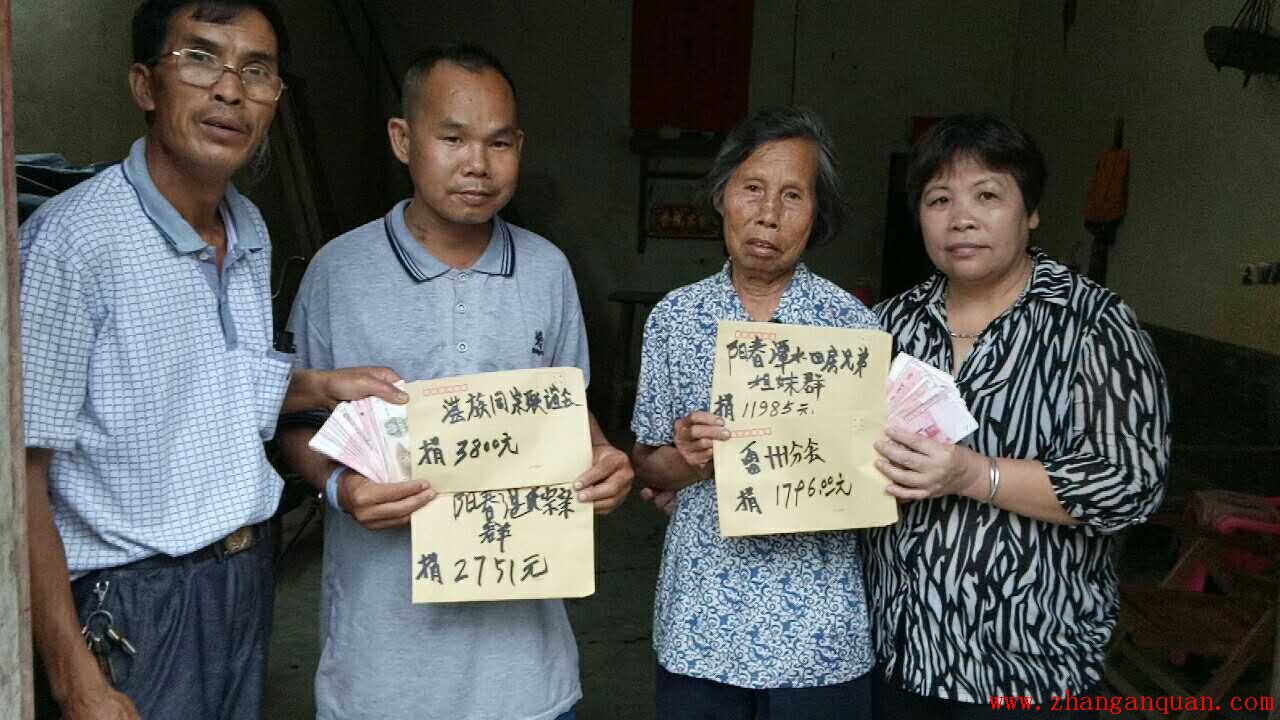 族同宗联谊会
捐 3800元
阳春
群
捐 2751元
阳春潭水四房兄弟
姐妹群
捐 11985元
分会
捐 1796.00元
www.zhanganquan.com